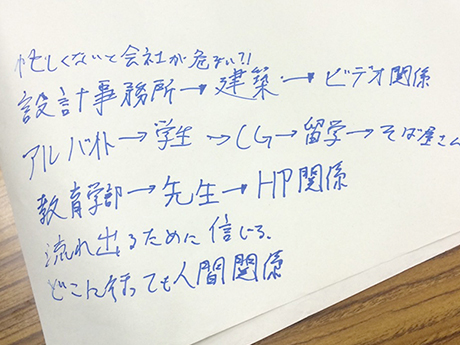 忙しくないと会社が危ない?!
設計事務所→建築→ビデオ関係
アルバイト→学生→CG→留学→そば屋さん
教育学部→先生→HP関係
流れ出るために信じる、
どこに行っても人間関係